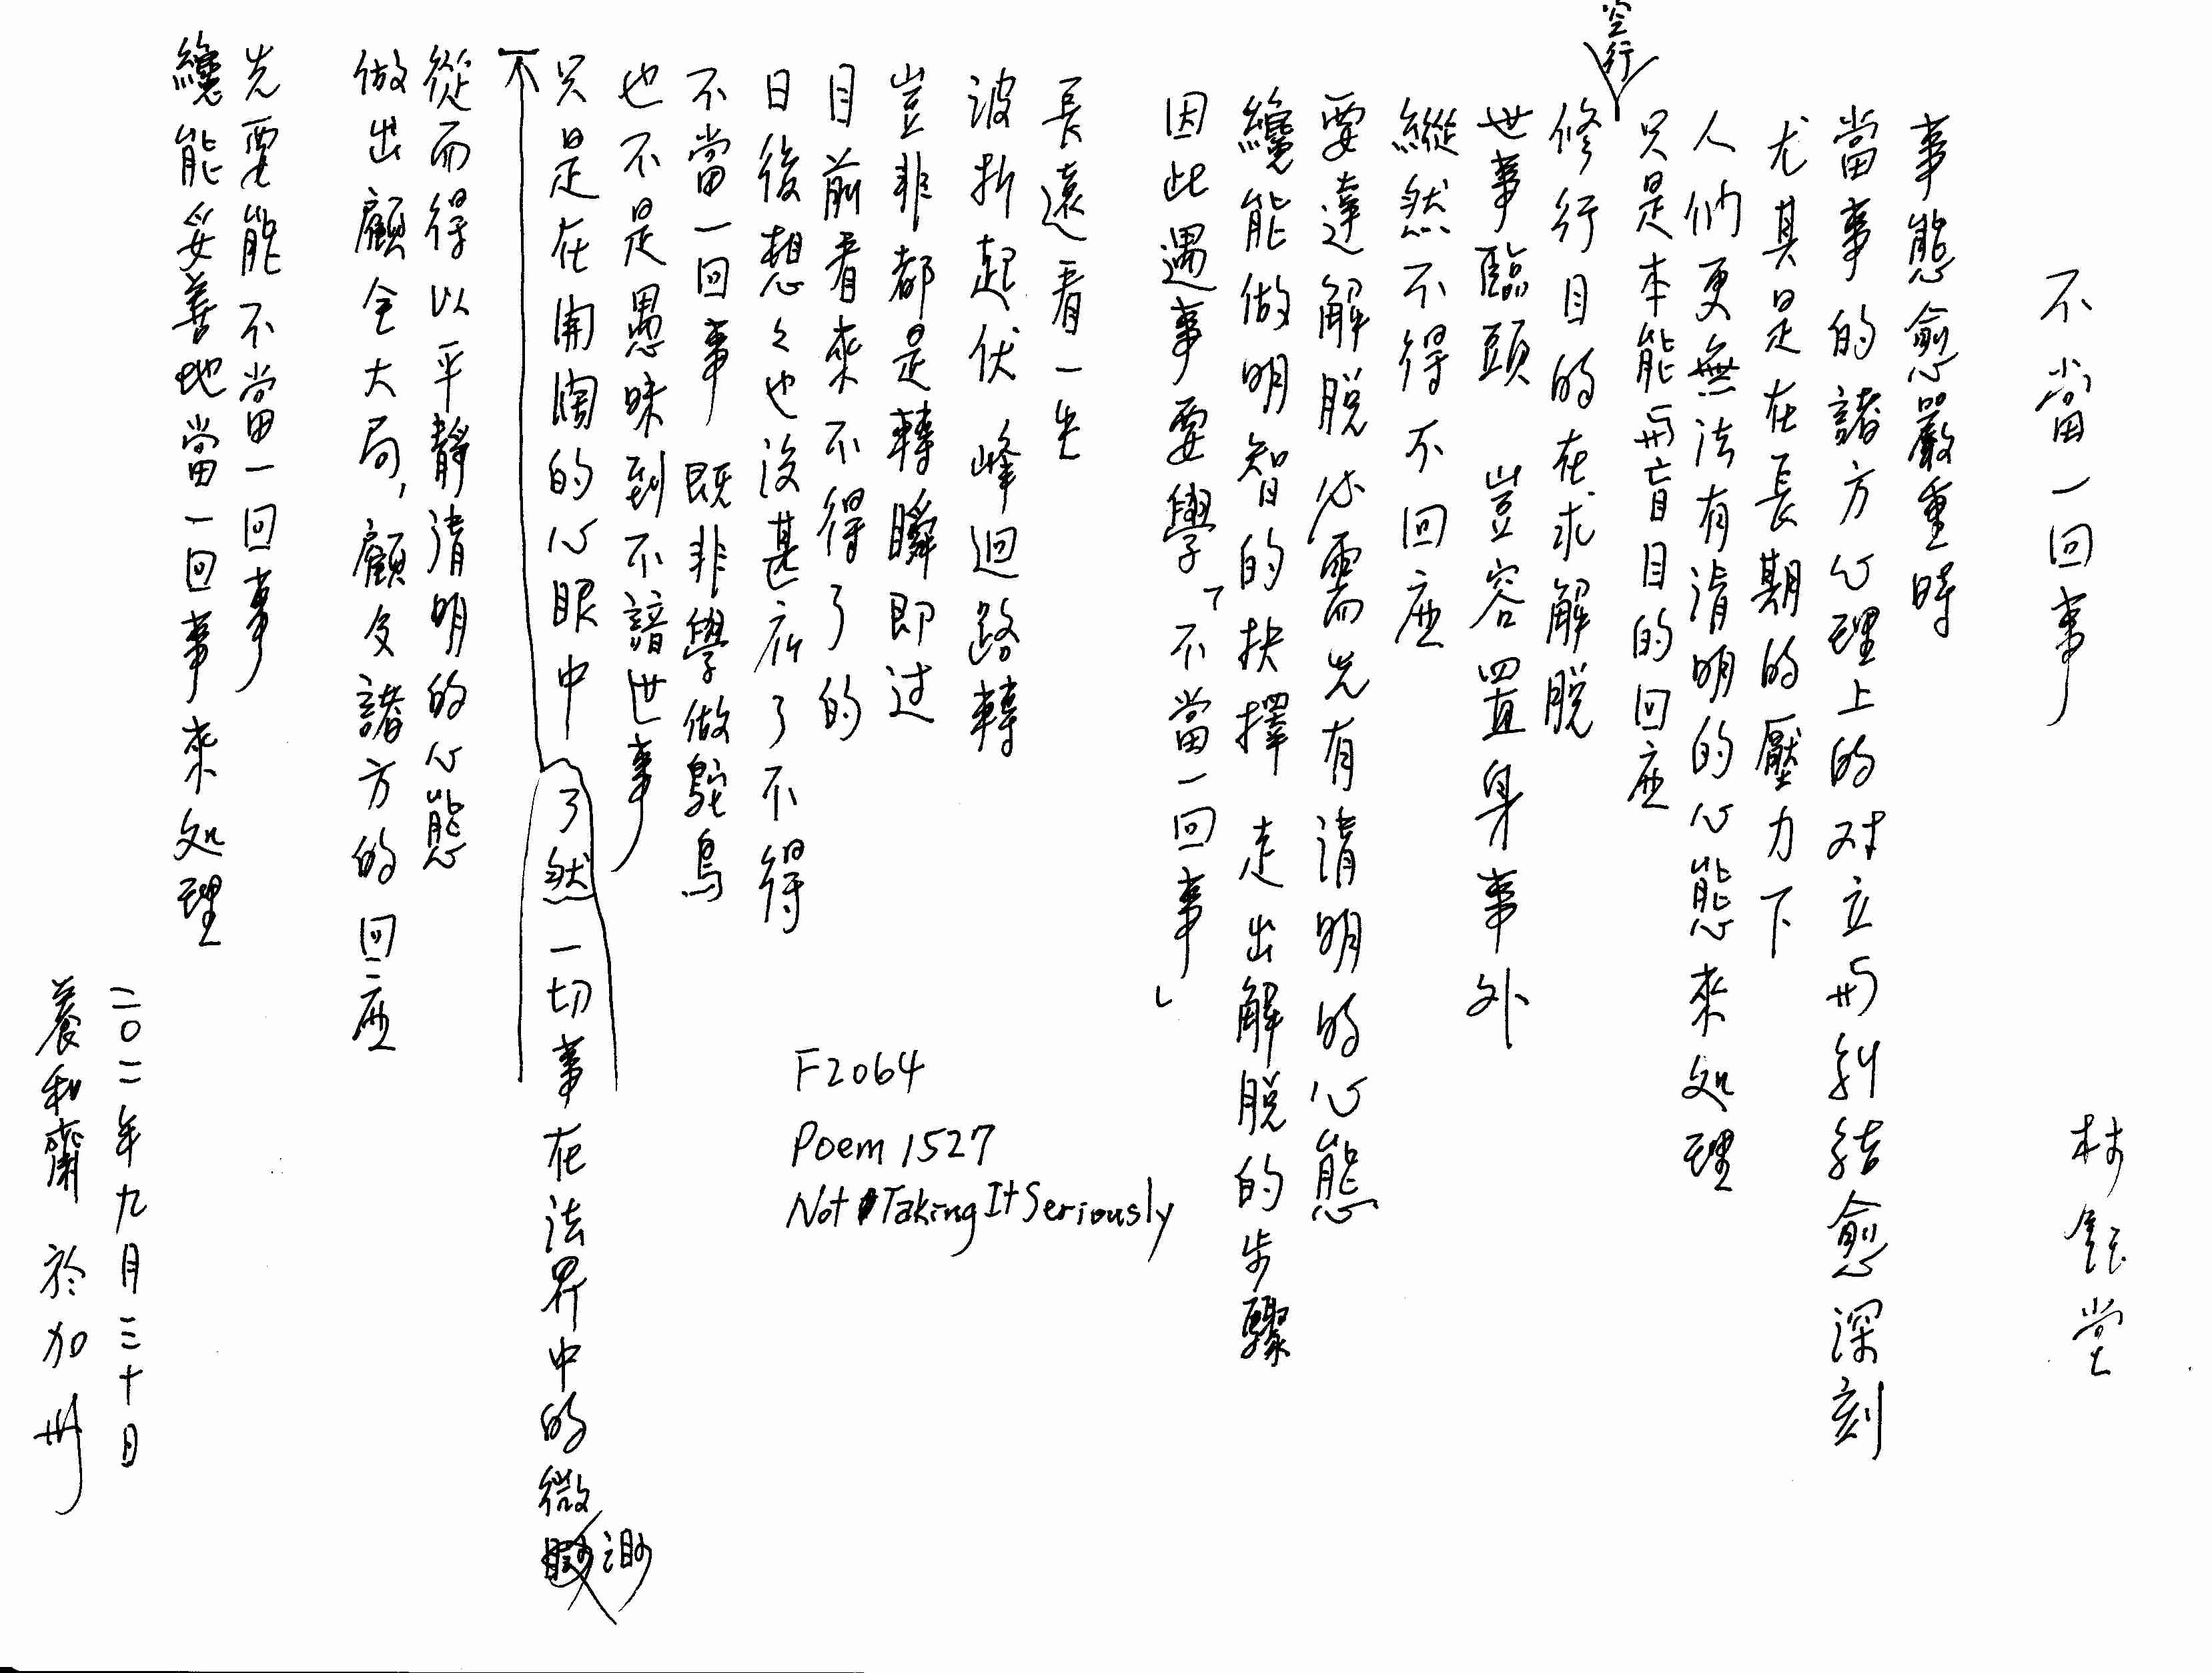 不當一回事
林鈺堂
事態愈嚴重時
當事的諸方心理上的对立与糾結愈深刻
尤其是在長期的壓力下
人們更無法有清明的心態來处理
只是本能与盲目的回应
空行
修行目的在求解脫
世事臨頭 豈容置身事外
縱然不得不回应
要達解脫必需先有清明的心態
纔能做明智的抉擇 走出解脫的步驟
因此遇事要學「不當一回事」
長遠看一生
波折起伏 峰迴路轉
豈非都是轉瞬即过
目前看來不得了的
日後想々也沒甚麼了不得
不當一回事 既非學做鴕鳥
也不是愚昧到不諳世事
只是在開闊的心眼中
了然一切事在法界中的微渺
從而得以平靜清明的心態
做出顧全大局，顧及諸方的回应
先要能不當一回事
纔能妥善地當一回事來处理
二〇一二年九月三十日
養和齋 於加州
F2064
Poem 1527
Not Taking It Seriously